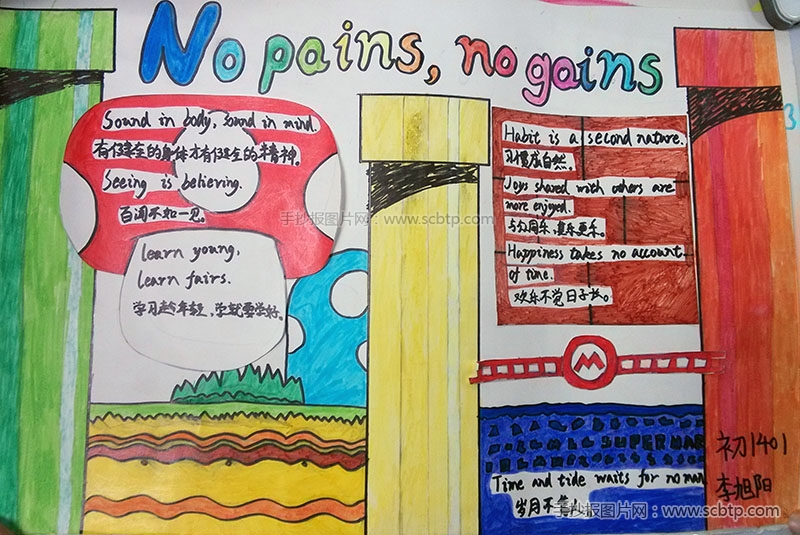 No pains, no gains
Sound in body, sound in mind.
有健全的身体才有健全的精神。
Seeing is believing.
百闻不如一见。
learn young,
learn fairs.
学习趁年轻,学就要学好。
Habit is a second nature.
习惯成自然。
Joys shared with others are
more enjoyed.
与众同乐,其乐更乐。
Happiness takes no account
of time.
欢乐不觉日子长。
手抄报图片网:www.scbtp.com
M
SUPER MAR
Time and tide waits for no man
岁月不等人
初1401
李旭阳
手抄报图片网:www.scbtp.com
3